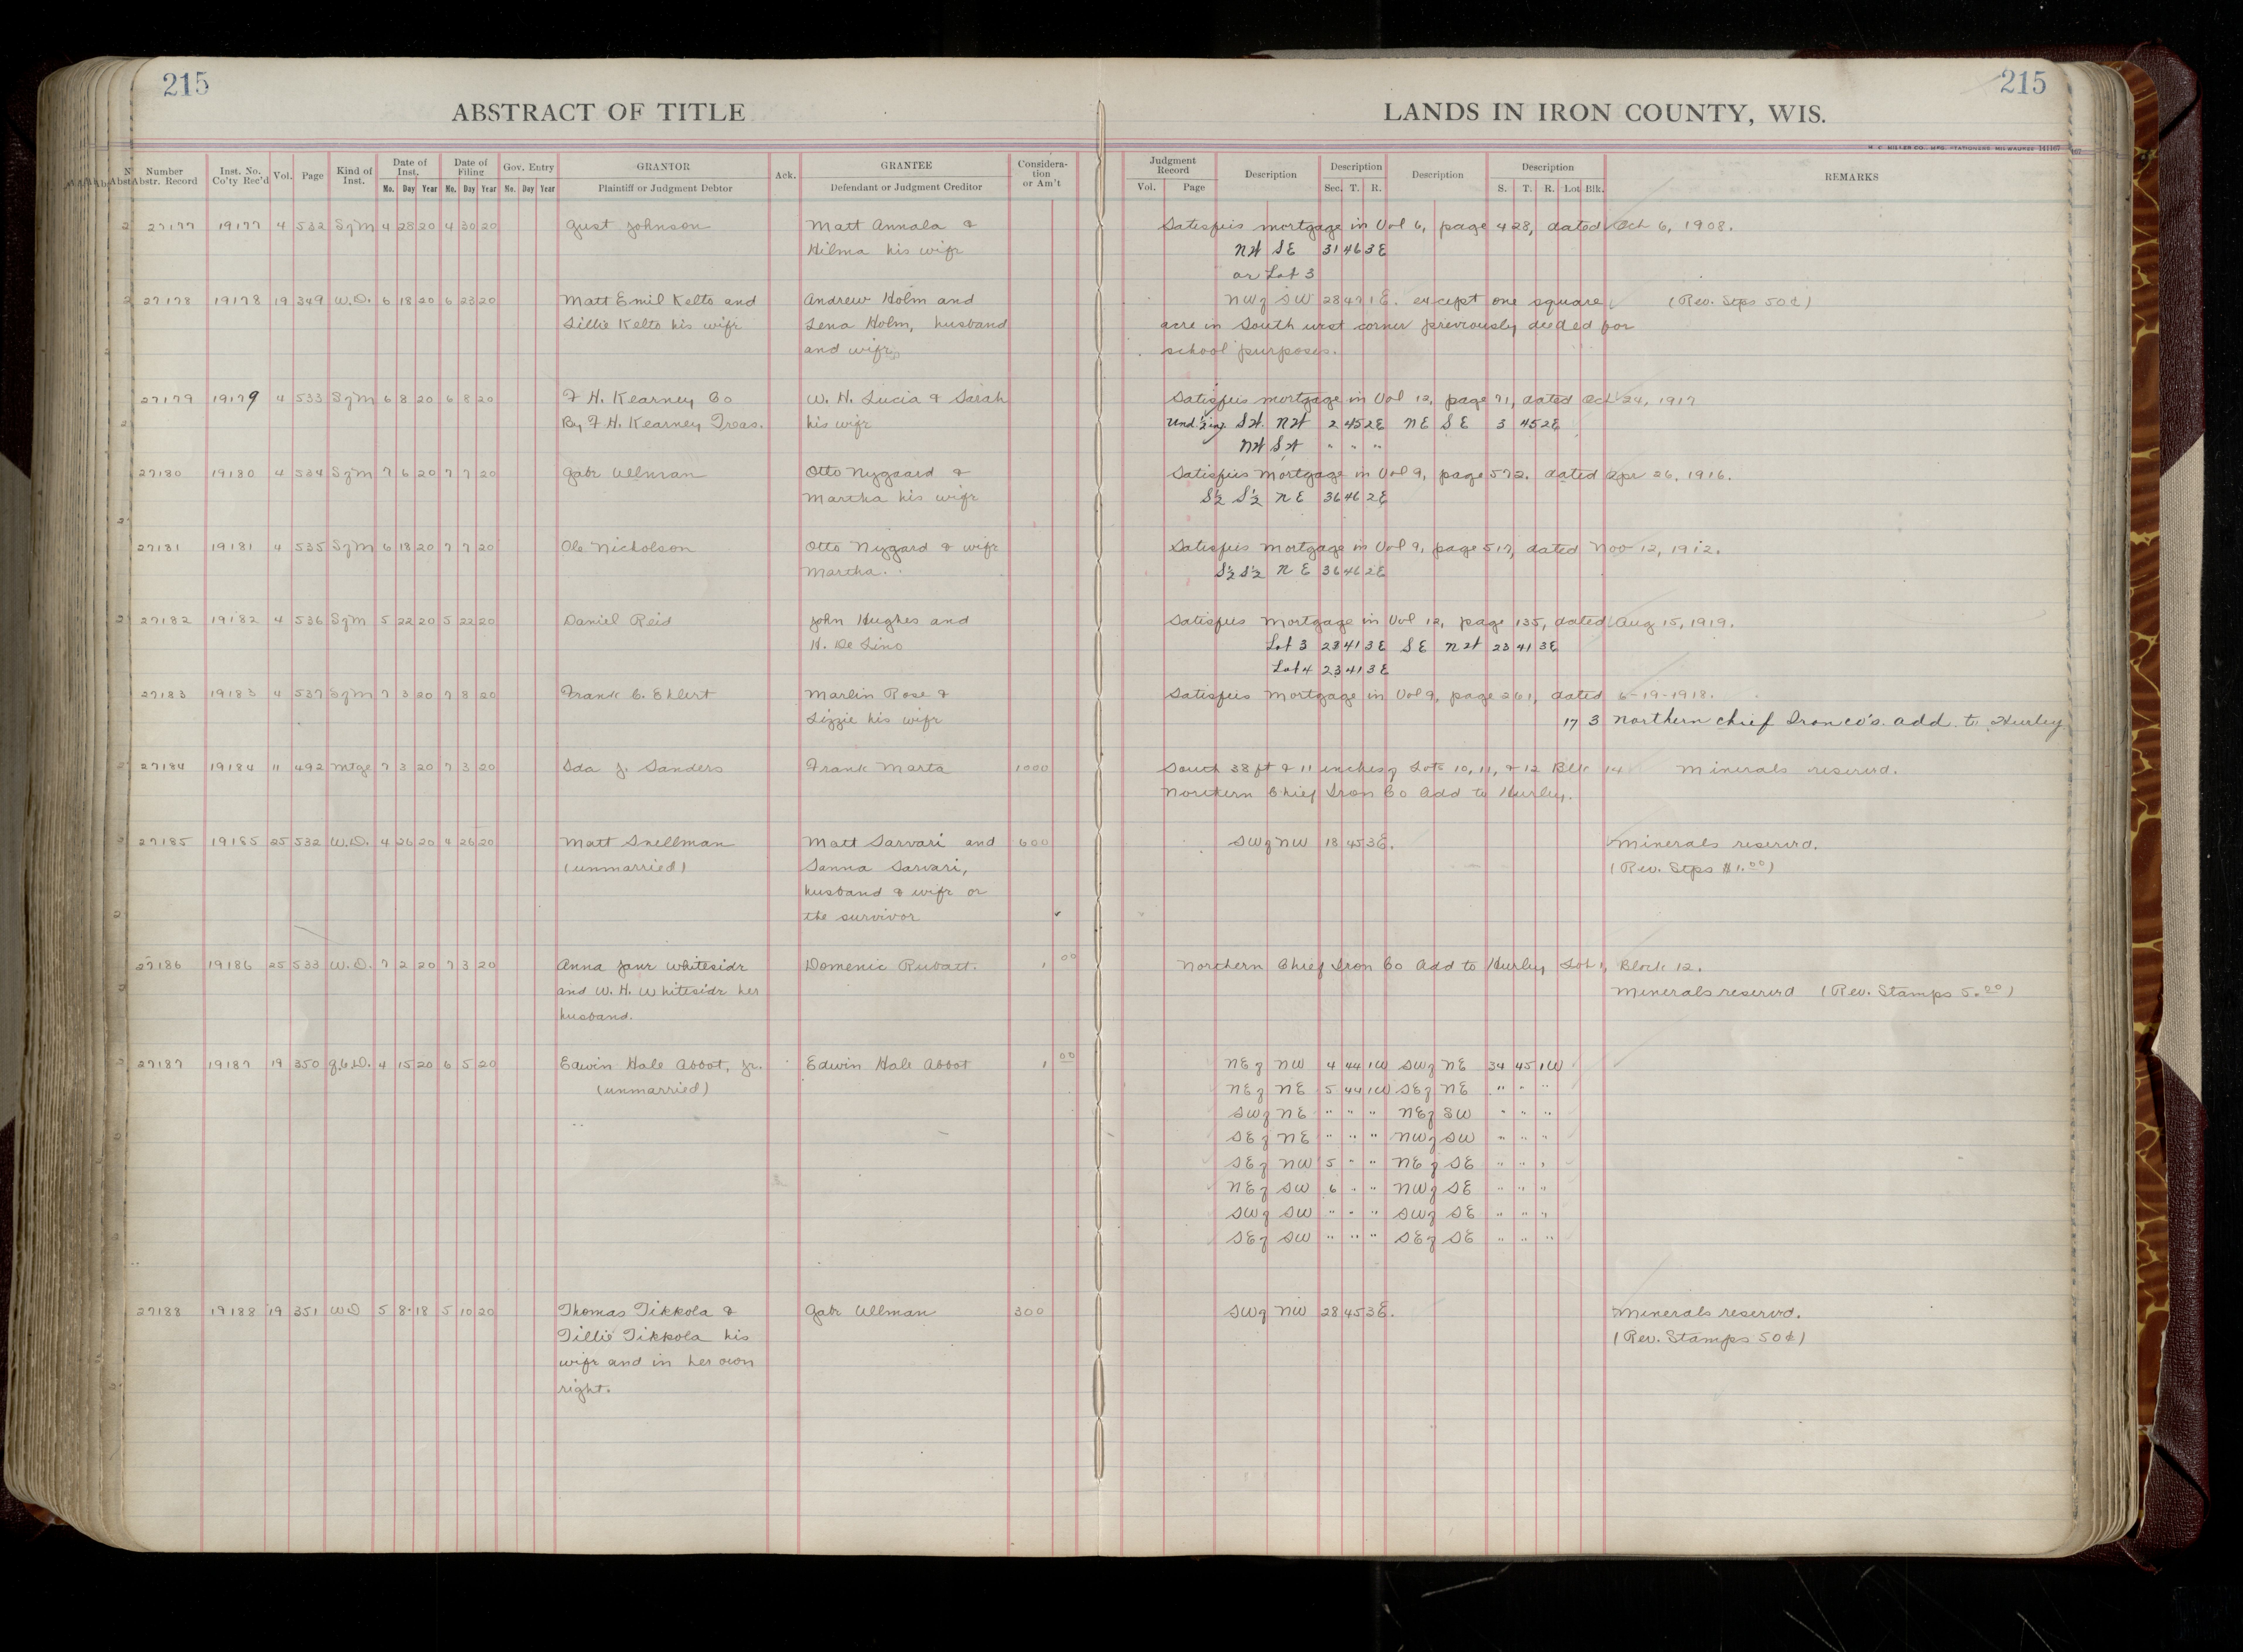 215
215
ABSTRACT OF TITLE
LANDS IN IRON COUNTY, WIS.
H. C. MILLER CO., MFG. STATIONERS MILWAUKEE 141167
Number Abstr. Record
Inst. No. Co'ty Rec'd
Vol.
Page
Kind of Inst.
Date of Inst.
No. Day Year
Date of Filing
No. Day Year
Gov. Entry
No. Day Year
GRANTOR
Plaintiff or Judgment Debtor
Ack.
GRANTEE
Defendant or Judgment Creditor
Considera-tion or Am't
Judgment Record
Vol. Page
Description
Description
Sec. T. R.
Description
Description
S. T. R. Lot Blk.
REMARKS
27177 19177 4 532 S of M 4 28 20 4 30 20 Gust Johnson Matt Annala & Satisfies mortgage in Vol 6, page 428, dated Oct 6, 1908.
Hilma his wife N½ SE 31 46 3E
or Lot 3
27178 19178 19 349 W.D. 6 18 20 6 23 20 Matt Emil Kelto and Andrew Holm and NW of SW 28 47 1E. except one square (Rev. Stps 50¢)
Lillie Kelto his wife Lena Holm, husband acre in South west corner previously deeded for
and wife school purposes.
27179 19179 4 533 S of M 6 8 20 6 8 20 F H. Kearney Co W. H. Lucia & Sarah Satisfies mortgage in Vol 12, page 71, dated Oct 24, 1917
By F. H. Kearney Treas. his wife Und. ½ in S½ N½ 2 45 2E NE SE 3 45 2E
N½ S½ " " "
27180 19180 4 534 S of M 7 6 20 7 7 20 Gabe Ullman Otto Nygaard & Satisfies Mortgage in Vol 9, page 572. dated Apr 26, 1916.
Martha his wife S½ S½ NE 36 46 2E
27181 19181 4 535 S of M 6 18 20 7 7 20 Ole Nicholson Otto Nygard & wife Satisfies Mortgage in Vol 9, page 517, dated Nov 12, 1912.
Martha. S½ S½ NE 36 46 2E
27182 19182 4 536 S of M 5 22 20 5 22 20 Daniel Reid John Hughes and Satisfies Mortgage in Vol 12, page 135, dated Aug 15, 1919.
H. De Lino Lot 3 23 41 3E SE N½ 23 41 3E
Lot 4 23 41 3E
27183 19183 4 537 S of M 7 3 20 7 8 20 Frank C. Ehlert Marlin Rose & Satisfies Mortgage in Vol 9, page 261, dated 6-19-1918.
Lizzie his wife 17 3 Northern Chief Iron Co's. add. to Hurley
27184 19184 11 492 Mtge 7 3 20 7 3 20 Ida J. Sanders Frank Marta 1000 South 38 ft & 11 inches of Lots 10, 11, & 12 Blk 14 Minerals reserved.
Northern Chief Iron Co Add to Hurley.
27185 19185 25 532 W.D. 4 26 20 4 26 20 Matt Snellman Matt Sarvari and 600 SW of NW 18 45 3E. Minerals reserved.
(unmarried) Sanna Sarvari, (Rev. Stps $1.00)
husband & wife or
the survivor
27186 19186 25 533 W.D. 7 2 20 7 3 20 Anna Jane Whiteside Domenic Rubatt. 1 00 Northern Chief Iron Co Add to Hurley Lot 1, Block 12.
and W. H. Whiteside her Minerals reserved (Rev. Stamps 5.00)
husband.
27187 19187 19 350 Q.C.D. 4 15 20 6 5 20 Edwin Hale Abbot, Jr. Edwin Hale Abbot 1 00 NE of NW 4 44 1W SW of NE 34 45 1W
(unmarried) NE of NE 5 44 1W SE of NE " " "
SW of NE " " " NE of SW " " "
SE of NE " " " NW of SW " " "
SE of NW 5 " " NE of SE " " "
NE of SW 6 " " NW of SE " " "
SW of SW " " " SW of SE " " "
SE of SW " " " SE of SE " " "
27188 19188 19 351 WD 5 8-18 5 10 20 Thomas Tikkola & Gabe Ullman 300 SW of NW 28 45 3E. Minerals reserved.
Tillie Tikkola his (Rev. Stamps 50¢)
wife and in her own
right.